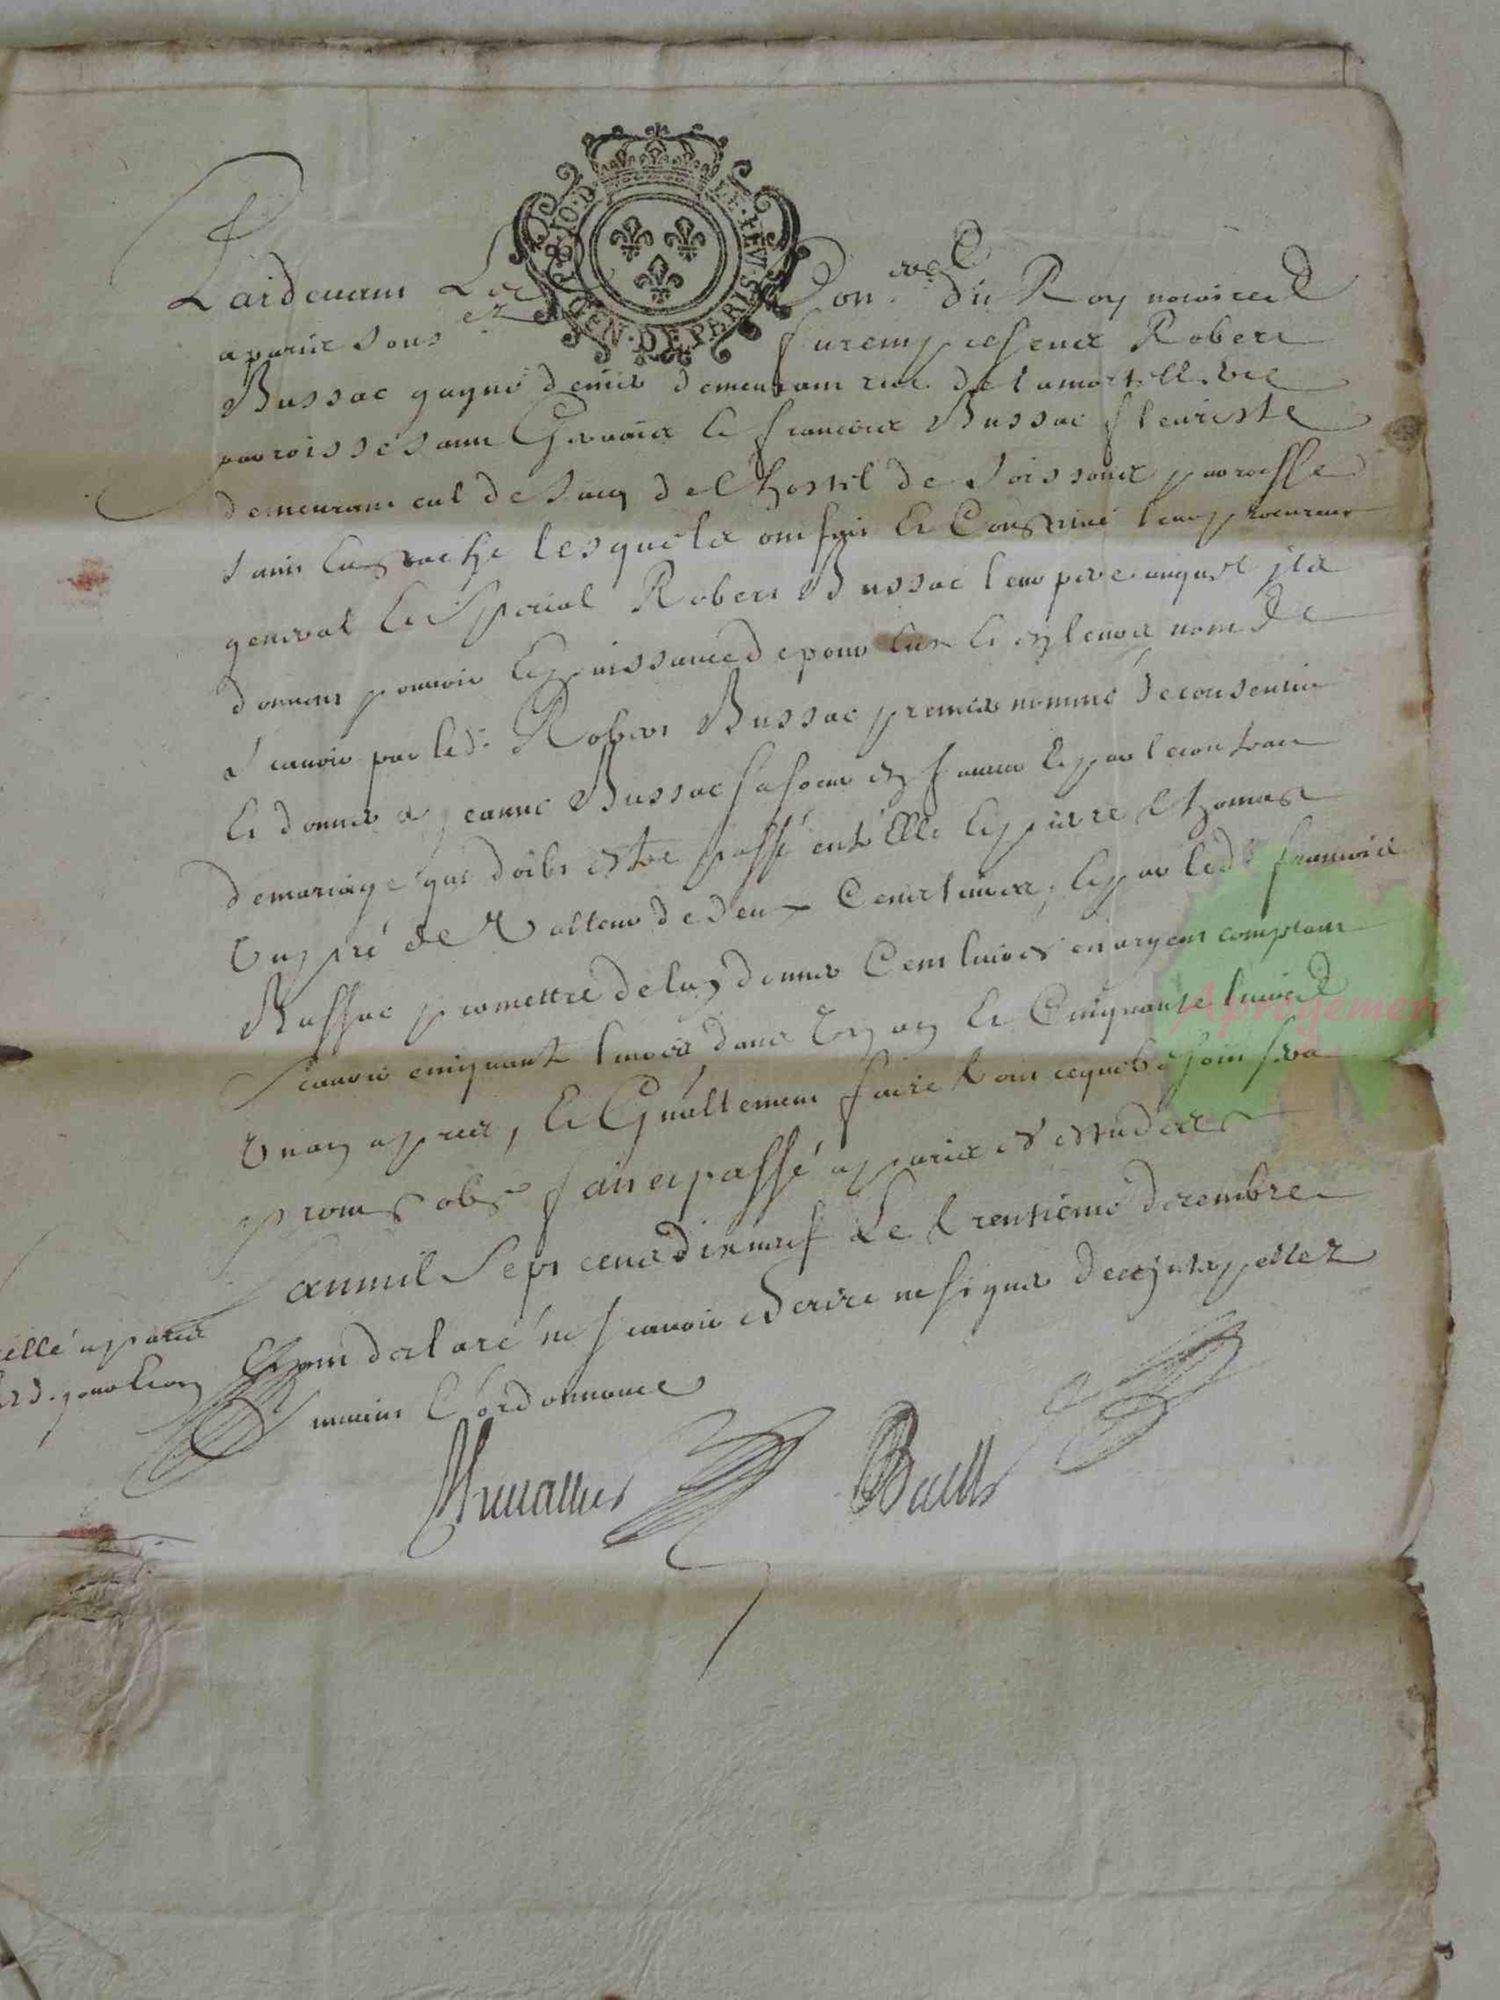 Pardevant Les Con.ers du Roy nores
a paris sous furent presents Robert
Bussac gagne denier demeurant rue de la mortellerie
parroisse saint Gervais et francois Bussac fleuriste
demeurant cul de sacq de lhostel de Soissons parroisse
saint Eustache lesquels ont fait et Constitué leur procureur
general et special Robert Bussac leur pere auquel ils
donnent pouvoir et puissance de pour eux et en leurs noms de
scavoir par led. Robert Bussac premier nommé de consentir
et donner a jeanne Bussac sa soeur en faveur et par le contrat
de mariage qui doibt estre passé entre Elle et pierre thomas
Un pré de Valleur de deux Cent livres, et par led. francois
Bussac promettre de luy donner Cent livres en argent comptant
scavoir cinquante livres dans Un an et Cinquante livres
Un an apres, et Gnallement faire tout ce quil
promt. obt. fait et passé a paris es estudes
Lan mil Sept cent dix neuf Le trentieme decembre
Et ont declaré ne scavoir Ecrire ne signer de ce interpellez
suivant l'ordonnance
scellé a paris
led. jour
GEN. DE PARIS
Aprogemere